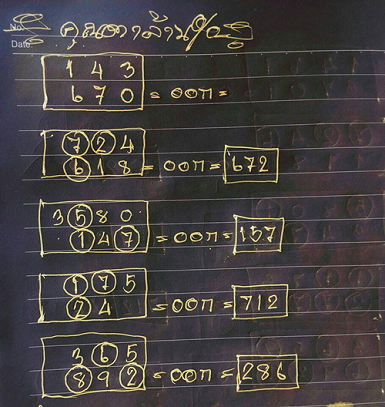 No.
Date
1 4 3
6 7 0 = ออก =
7 2 4
6 1 8 = ออก = 672
3 5 8 0
1 4 7 = ออก = 157
1 7 5
2 4 = ออก = 712
3 6 5
8 9 2 = ออก = 286